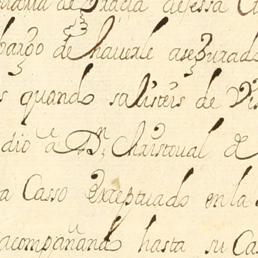 de Gracia de essa Ci
bargo de haverle asegurado
s quando salisteis de Vi
dio a Dn. Christoval de
a Casso exceptuado en la
acompañand hasta su Cas